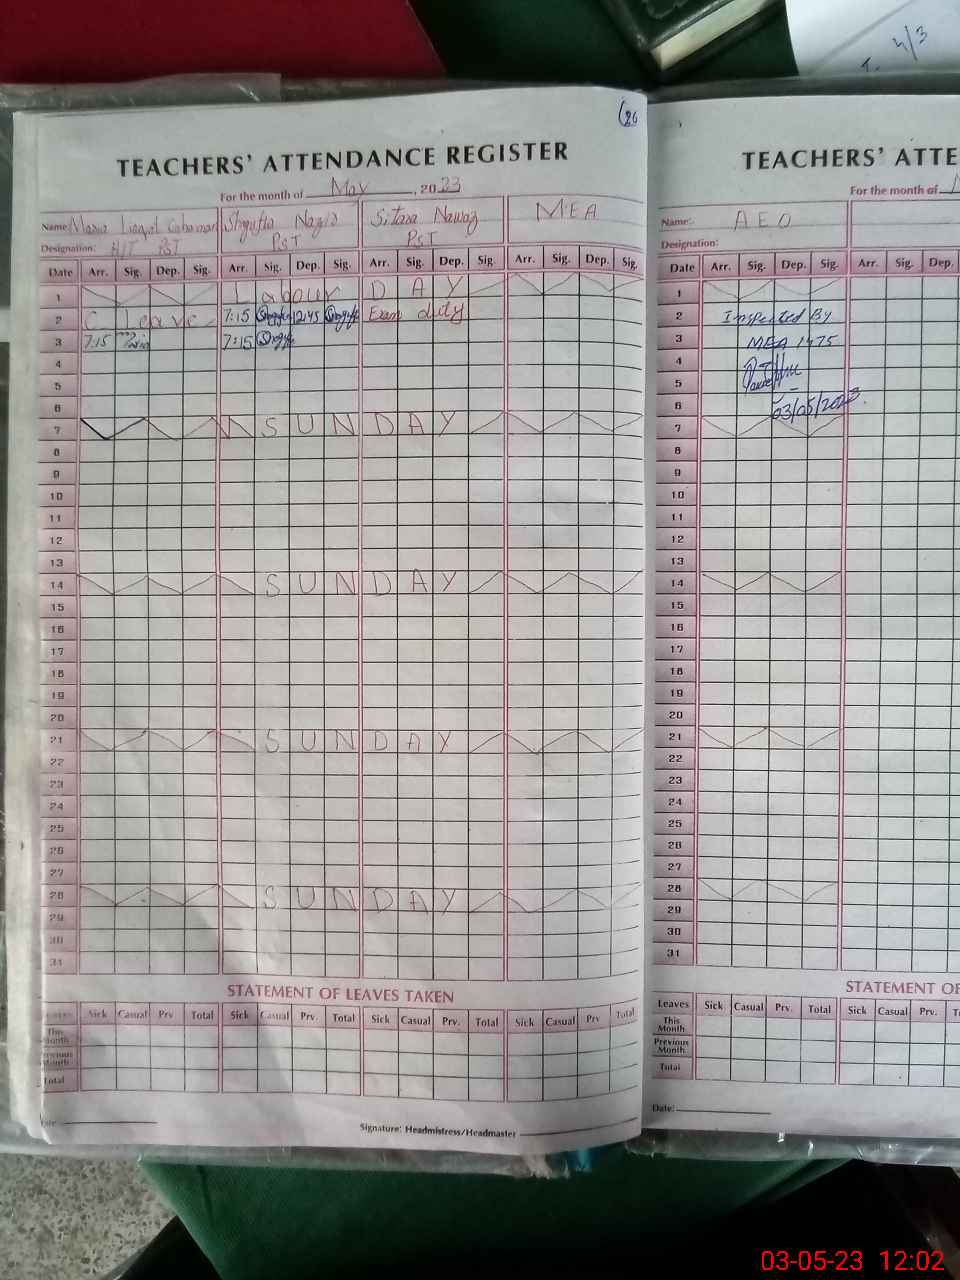 TEACHERS' ATTENDANCE REGISTER
For the month of May, 2023
Name: Maria Liaqat Shgufta Nazir Sitara Nawaz MEA
Designation: PST PST PST
Date Arr. Sig. Dep. Sig. Arr. Sig. Dep. Sig. Arr. Sig. Dep. Sig. Arr. Sig. Dep. Sig.
1 Labour DAY
2 C Leave 7:15 12:45 Exam duty
3 7:15 7:15
4
5
6
7 SUNDAY
8
9
10
11
12
13
14 SUNDAY
15
16
17
18
19
20
21 SUNDAY
22
23
24
25
26
27
28 SUNDAY
29
30
31
STATEMENT OF LEAVES TAKEN
Leaves Sick Casual Prv Total Sick Casual Prv. Total Sick Casual Prv. Total Sick Casual Prv Total
This Month
Previous Month
Total
Signature: Headmistress/Headmaster
TEACHERS' ATTE
For the month of
Name: AEO
Designation:
Date Arr. Sig. Dep. Sig. Arr. Sig. Dep.
1
2 Inspected By
3 MEA 1475
4
5
6 03/05/2023.
7
8
9
10
11
12
13
14
15
16
17
18
19
20
21
22
23
24
25
26
27
28
29
30
31
STATEMENT OF
Leaves Sick Casual Prv. Total Sick Casual Prv.
This Month
Previous Month
Total
Date:
03-05-23 12:02